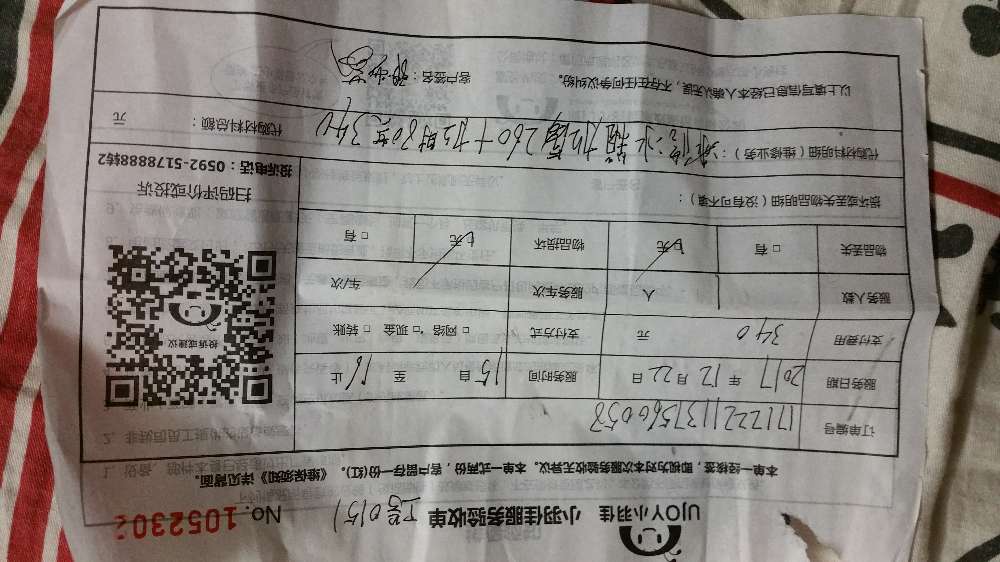 UJOY小羽佳 小羽佳服务验收单 工号0151 No. 1052302
本单一经核签，即视为对本次服务验收无异议。本单一式两份，客户留存一份(红)。《维保须知》详见背面。
订单编号 171222113756058
服务日期 2017 年 12 月 22 日 服务时间 15 自 至 16 止
支付费用 340 元 支付方式 □ 网络 □ 现金 □ 转账
服务人数 1 人 服务车次 车/次
物品丢失 □ 有 □ 无 物品损坏 □ 无 □ 有
损坏或丢失物品明细（没有可不填）：
代购材料明细（维修业务）：维修冰箱 260 + 80 340
代购材料总额： 元
以上填写信息已经本人确认无误，不存在任何争议纠纷。 客户签名：
投诉或建议
扫码评价或投诉
投诉电话：0592-5178888转2